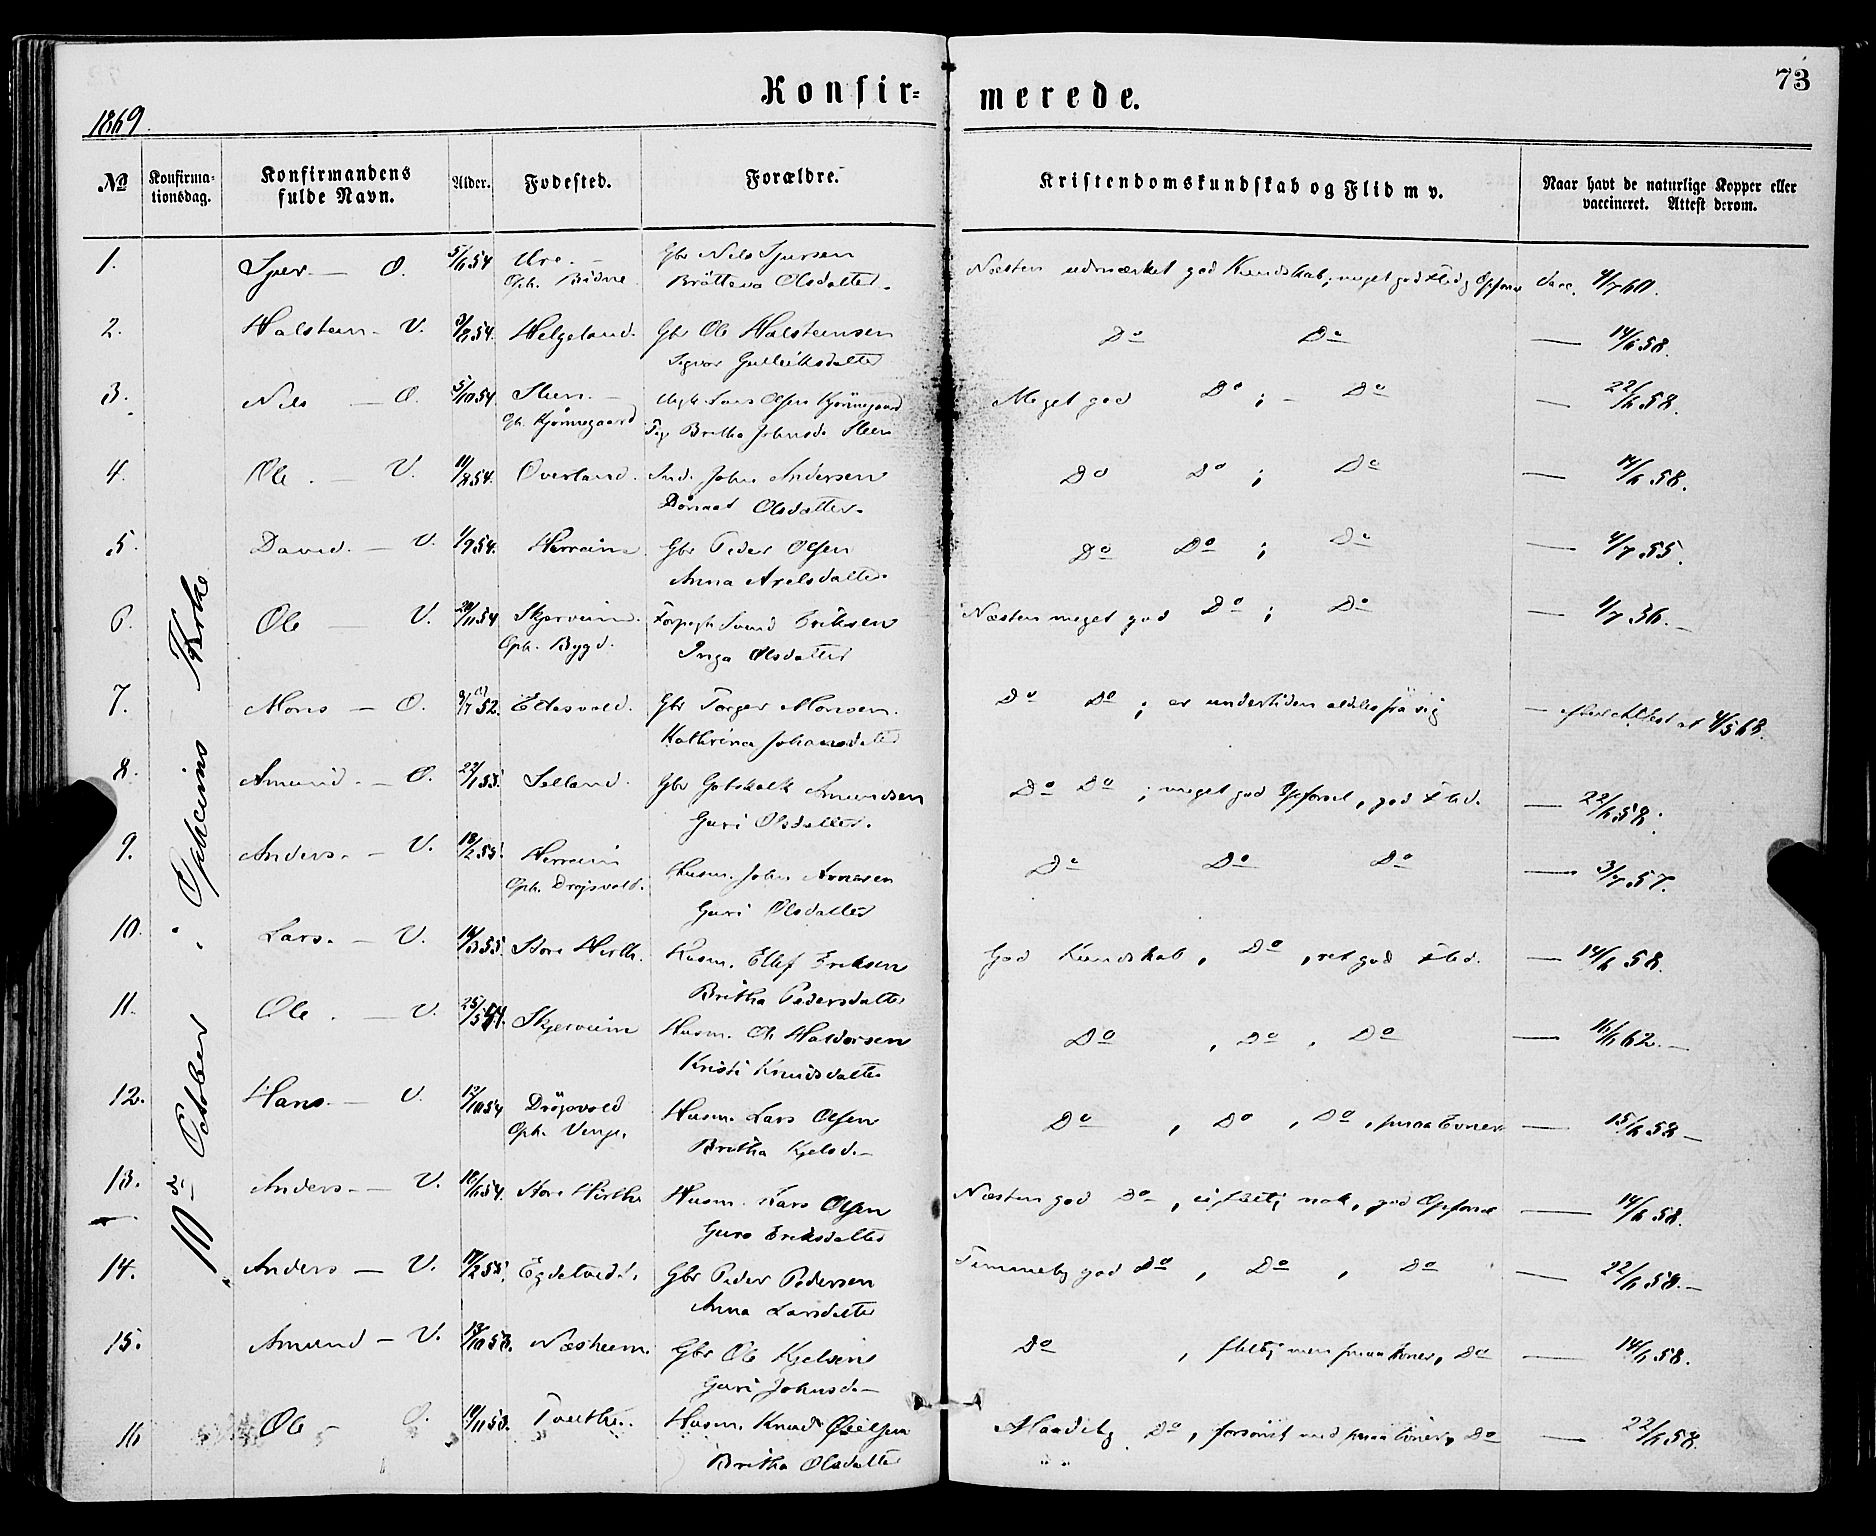 73
Konfir-merede.
1869.
№ Konfirma-tionsdag. Konfirmandens fulde Navn. Alder. Fødested. Forældre. Kristendomskundskab og Flid m v. Naar havt de naturlige Kopper eller vaccineret. Attest derom.
10de October i Opheims Kirke
1. Sjur — O. 5/6 54 Ure. — Gbr Nils Sjursen Næsten udmærket god Kundskab, meget god Flid og Opførsel Vacc. 4/7 60.
Oph. Brætteva Olsdatter.
2. Halstein — V. 3/8 54. Helgeland. Gbr Ole Halsteinsen Do Do — 14/6 58.
Sigvor Gulleiksdatter
3. Nils — O. 5/10 54 Steen. — Lars Olsen Kjønnegaard Meget god Do ; — Do — 22/6 58.
Oph. Kjønnegaard Pige Britha Johnsd. Steen
4. Ole — V. 11/8 54. Overland. Ind. John Andersen Do Do ; Do — 14/6 58.
Olsdatter.
5. David — V. 1/9 54. Gbr Peder Olsen Do Do ; Do — 4/7 55.
Anna Axelsdatter
6. Ole — V. 20/11 54 Skjerveim. Svend Eriksen Næsten meget god Do ; Do — 1/7 56. —
Oph. Bygd. Inga Olsdatter
7. Mons — O. 52. Gbr Torger Monsen. Do Do ; er undertiden — efter Attest af 4/5 68.
Kathrina Johannesdatter
8. Amund — O. 22/1 55. Selland. Gbr Gotskalk Amundsen Do Do ; meget god Opførsel, god Flid. — 22/6 58.
Guri Olsdatter.
9. Anders — V. 18/2 55. Husm. John Arnesen Do Do Do — 3/7 57.
Oph. Guri Olsdatter
10. Lars — V. 14/3 55. Store Husm. Ellef Eriksen God Kundskab, Do, ret god Flid. — 14/6 58.
Britha Pedersdatter
11. Ole — V. 25/5 54. Skjerveim Husm. Ole Haldorsen Do , Do , Do — 16/6 62. —
Kristi Knudsdatter
12. Hans — V. 12/10 54 Husm. Lars Olsen Do , Do , Do, smaa Evner — 15/6 58 —
Oph. Vinje. Britha Kjelsd. —
13. Anders — V. 18/6 54. Store Husm. Lars Olsen Næsten god Do, ei flittig nok, god Opførsel — 14/6 58.
Guro Eriksdatter
14. Anders — V. 17/2 55. Gbr Peder Pedersen Temmelig god Do , Do , Do — 22/6 58. —
Anna Larsdatter
15. Amund — V. 13/10 53. Næsheim. Gbr Ole Kjelsen Do , flittig men smaa Evner, Do — 14/6 58.
Guri Johnsd. —
16 Ole — O. 10/11 53. Husm. Knud Maadelig Do, forsømt med smaa Evner, Do — 22/6 58.
Britha Olsdatter